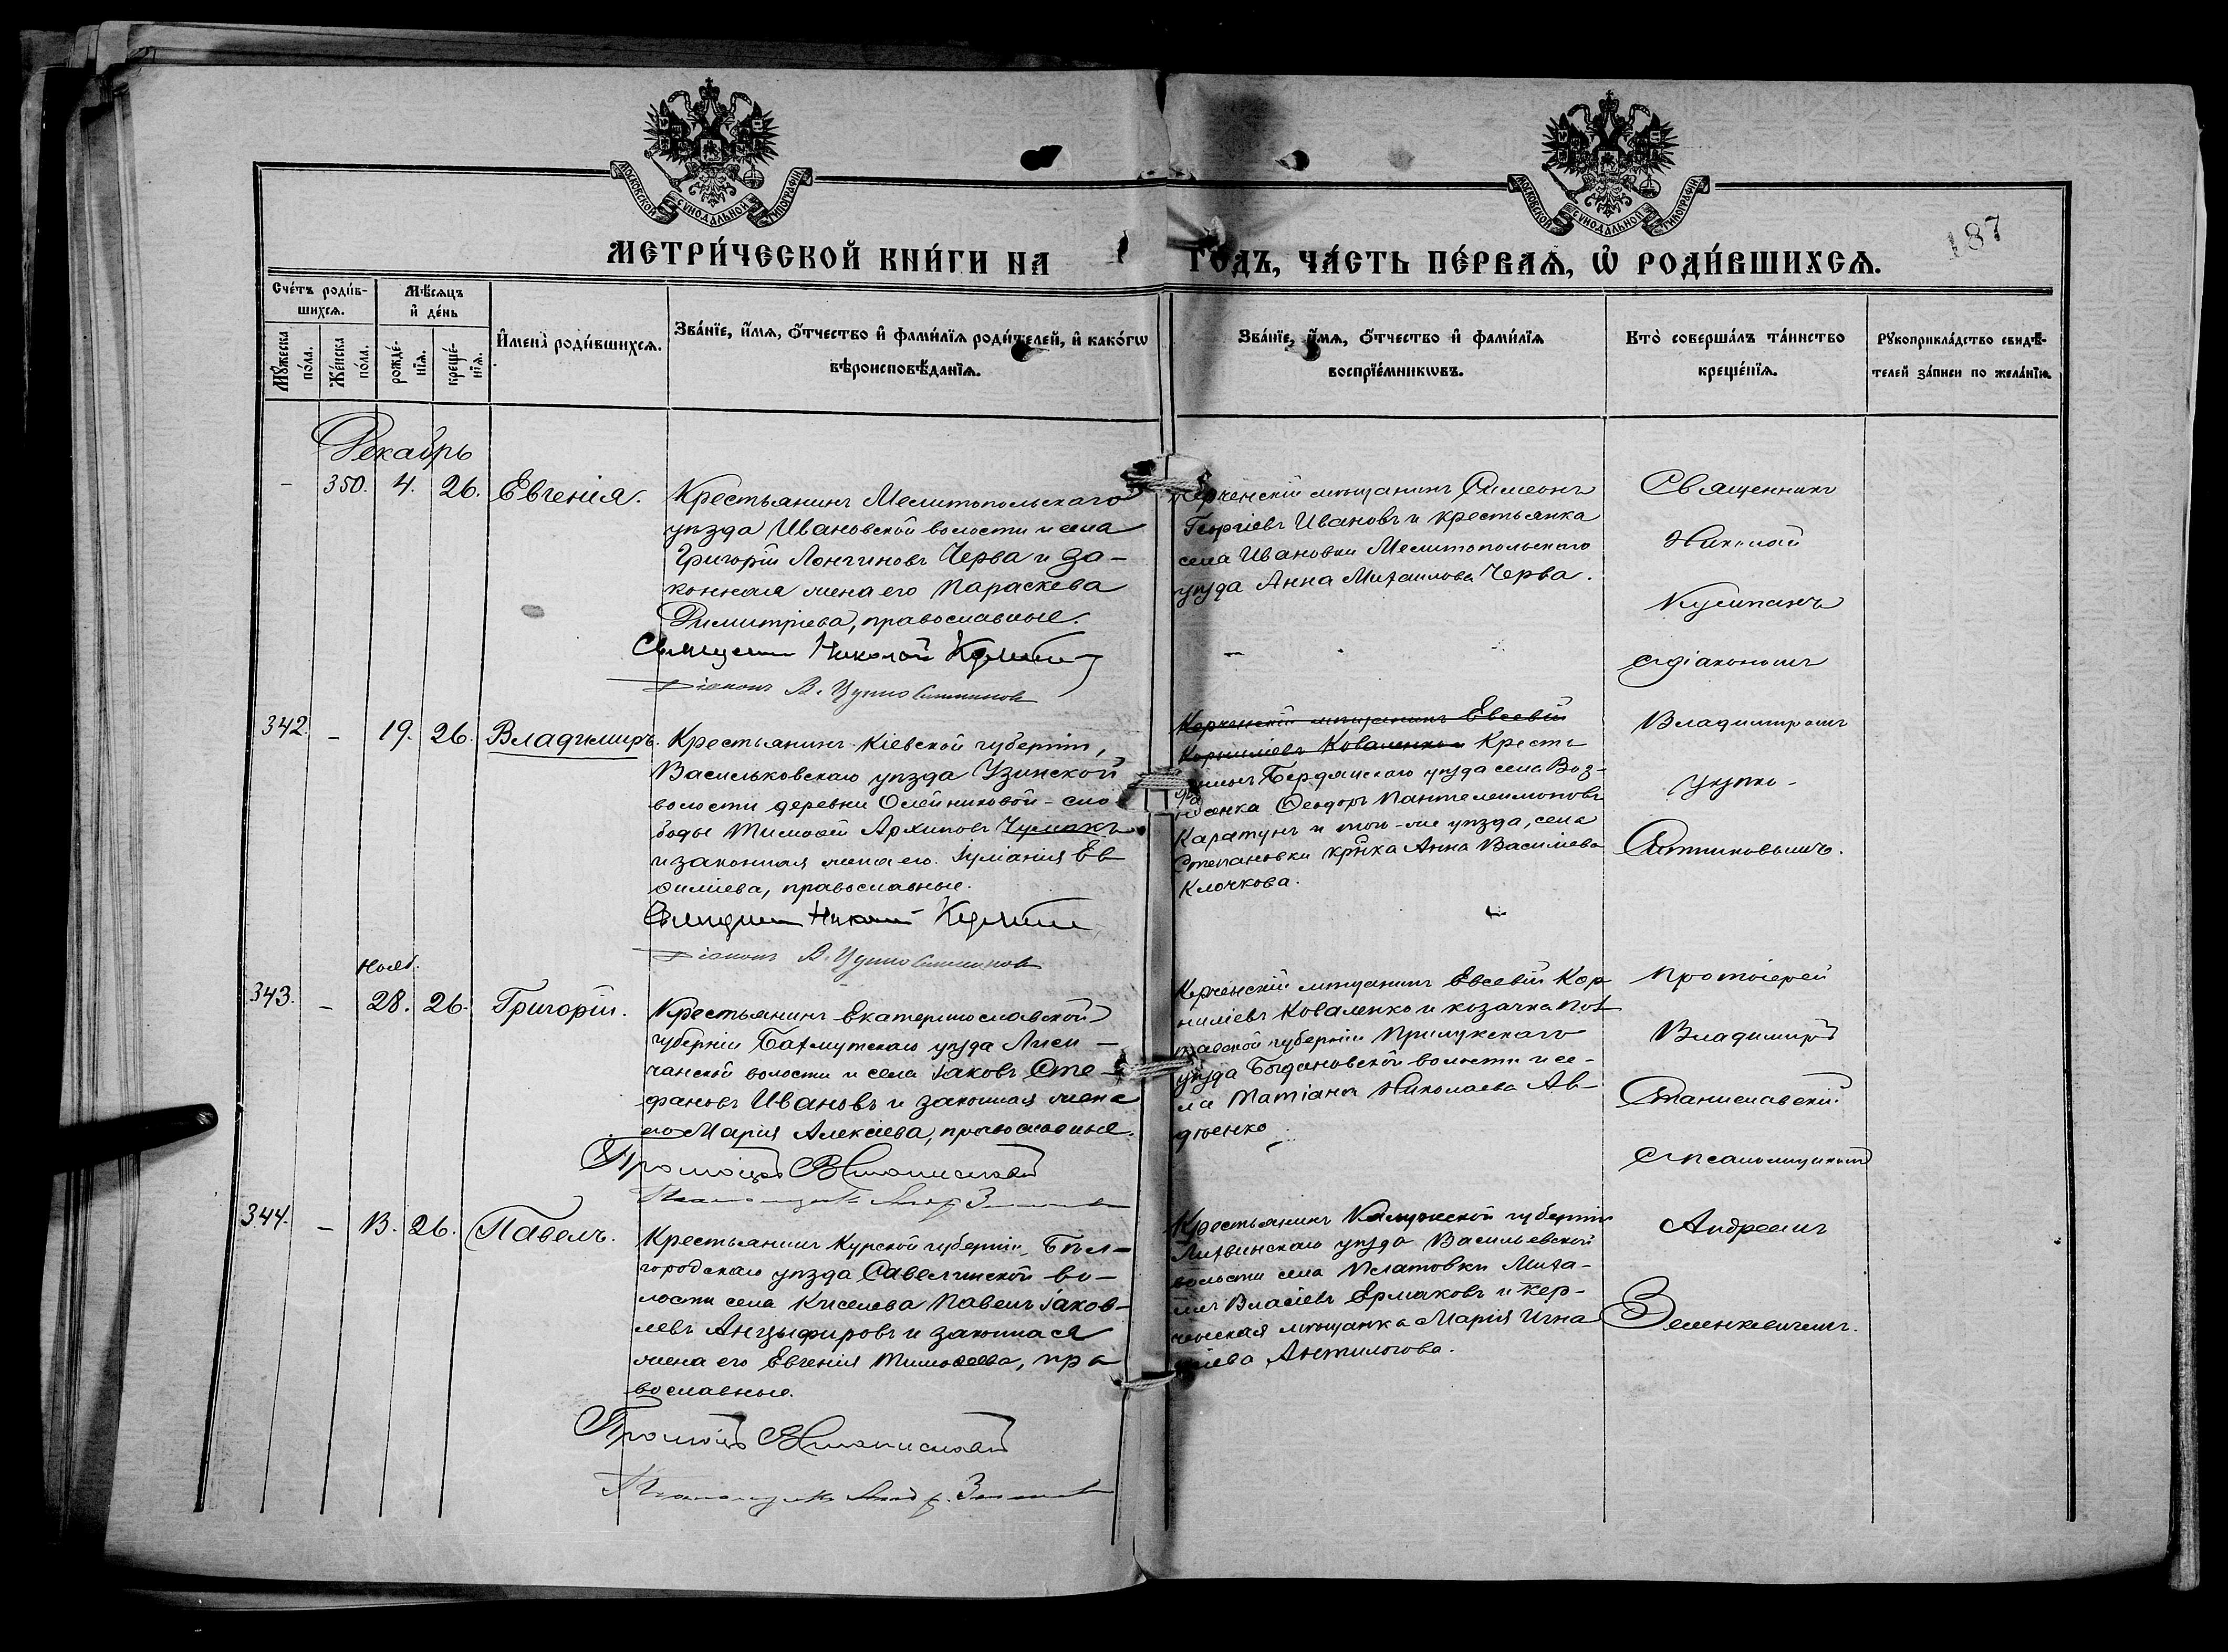 МОСКОВСКОЙ СѴНОДАЛЬНОЙ ТИПОГРАФІИ
МОСКОВСКОЙ СѴНОДАЛЬНОЙ ТИПОГРАФІИ
187
МЕТРИ́ЧЕСКОЙ КНИ́ГИ НА ГОДЪ, ЧА́СТЬ ПЕ́РВАѦ, Ѡ҆ РОДИ́ВШИХСѦ.
Сче́тъ роди́в-
шихсѧ.
Мꙋ́жеска по́ла.
Же́нска по́ла.
Мѣ́сѧцъ и҆ де́нь
рожде́-
нїѧ.
креще́-
нїѧ.
И҆мена̀ роди́вшихсѧ.
Зва́нїе, и҆́мѧ, ѻ҆́тчество и҆ фами́лїѧ роди́телей, и҆ како́гѡ
вѣроисповѣ́данїѧ.
Зва́нїе, и҆́мѧ, ѻ҆́тчество и҆ фами́лїѧ
воспрїе́мникѡвъ.
Кто̀ соверша́лъ та́инство
креще́нїѧ.
Рꙋкоприкла́дство свидѣ́-
телей за́писи по жела́нїю.
Декабрь
- 350. 4. 26. Евгенія.
Крестьянинъ Мелитопольскаго
уѣзда Ивановской волости и села
Григорій Лонгиновъ Черва и за-
конная жена его Параскева
Димитріева, православные.
Священникъ Николай
Діаконъ В.
Керченскій мѣщанинъ Симеонъ
Георгіевъ Ивановъ и крестьянка
села Ивановки Мелитопольскаго
уѣзда Анна Михаилова Черва.
Священникъ
Николай
съ діакономъ
Владимиромъ
342. - 19. 26. Владимиръ.
Крестьянинъ Кіевской губерніи,
Васильковскаго уѣзда Узинской
волости деревни Олейниковой-сло
боды Тимоѳей Архиповъ Чумакъ
и законная жена его Іуліанія Ев
ѳиміева, православные.
Священникъ Николай
Діаконъ В.
Керченскій мѣщанинъ Евсевій
Корниліевъ Коваленко Кресть
янинъ Бердянскаго уѣзда села Воз-
Ѳеодоръ Пантелеимоновъ
Каратунъ и того-же уѣзда, села
Степановки кр̃нка Анна Василіева
Клочкова.
343. - Нояб. 28. 26. Григорій.
Крестьянинъ Екатеринославской
губерніи Бахмутскаго уѣзда Лиси-
чанской волости и села Іаковъ Сте-
фановъ Ивановъ и законная жена
его Марія Алексіева, православные.
Протоіерей В Станиславскій
Керченскій мѣщанинъ Евсевій Кор
ниліевъ Коваленко и козачка Пол
тавской губерніи Прилукскаго
уѣзда Богдановской волости и се-
ла Татіана Николаева Ав-
дѣенко
Протоіерей
Владимиръ
Станиславскій
съ псаломщикомъ
Андреемъ
Зеленкевичемъ.
344. - 13. 26. Павелъ.
Крестьянинъ Курской губерніи, Бѣл-
городскаго уѣзда Савелинской во-
лости села Киселева Павелъ Іаков-
левъ Анцыфировъ и законная
жена его Евгенія Тимоѳеева, пра
вославные.
Протоіерей В Станиславскій
Крестьянинъ Калужской губерніи
Лихвинскаго уѣзда Васильевской
волости села Платовки Миха-
илъ Власіевъ Ермаковъ и кер-
ченская мѣщанка Марія Игна
тіева Антипогова.